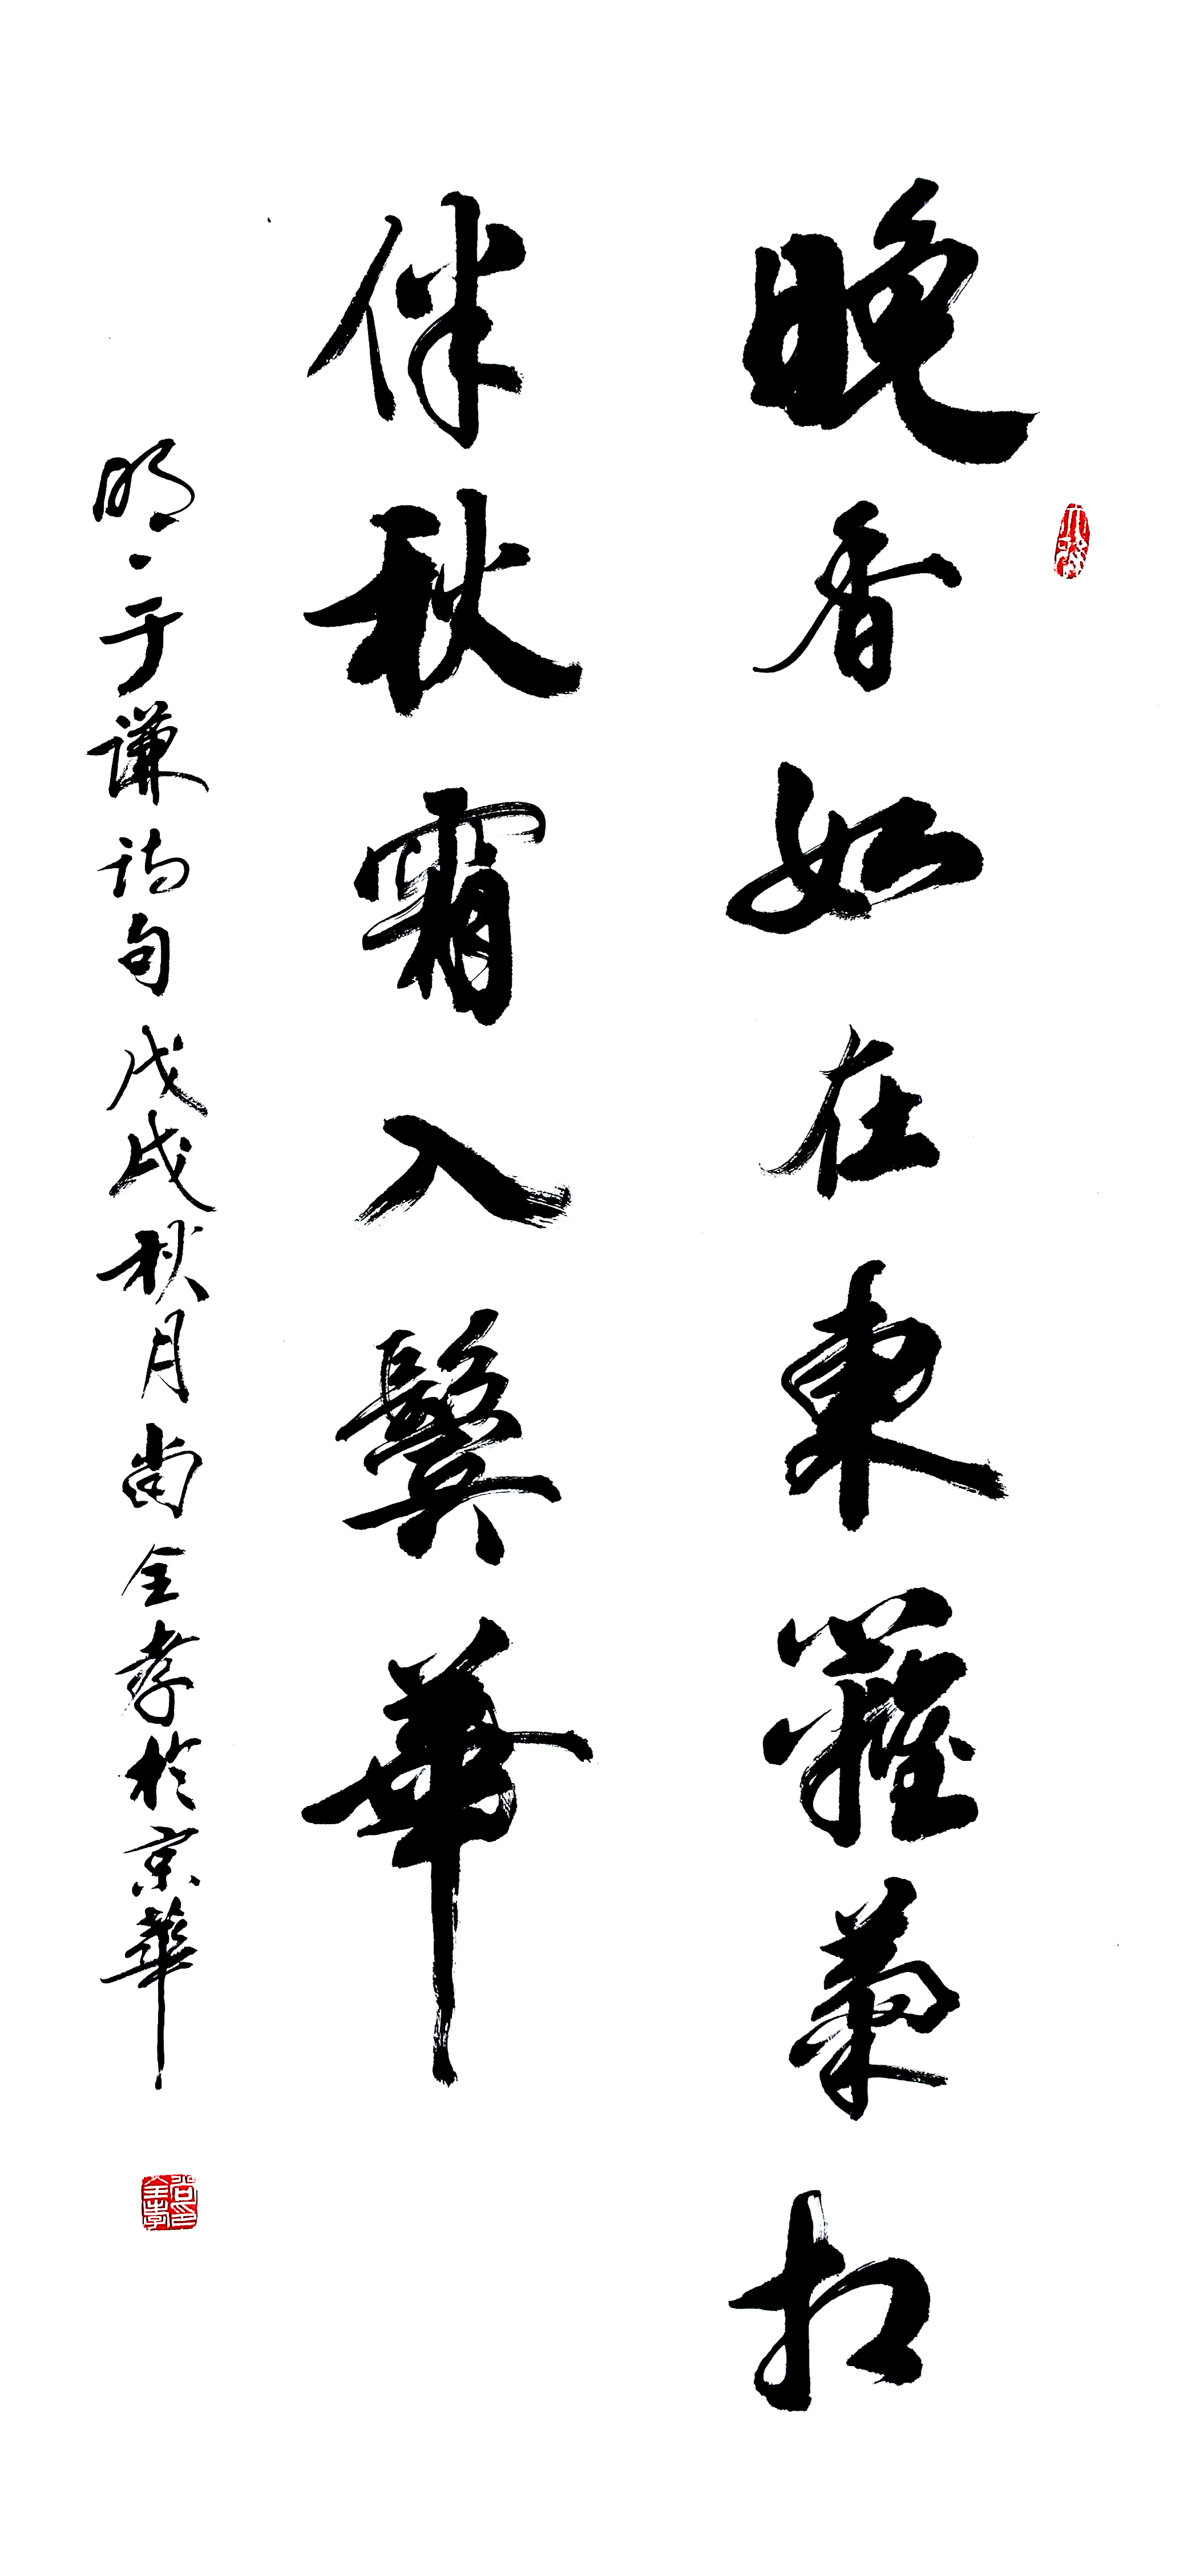 晚香如在東籬菊相
伴秋霜入鬢華
明·于謙詩句戊戌秋月尚全孝於京華
尚印全孝